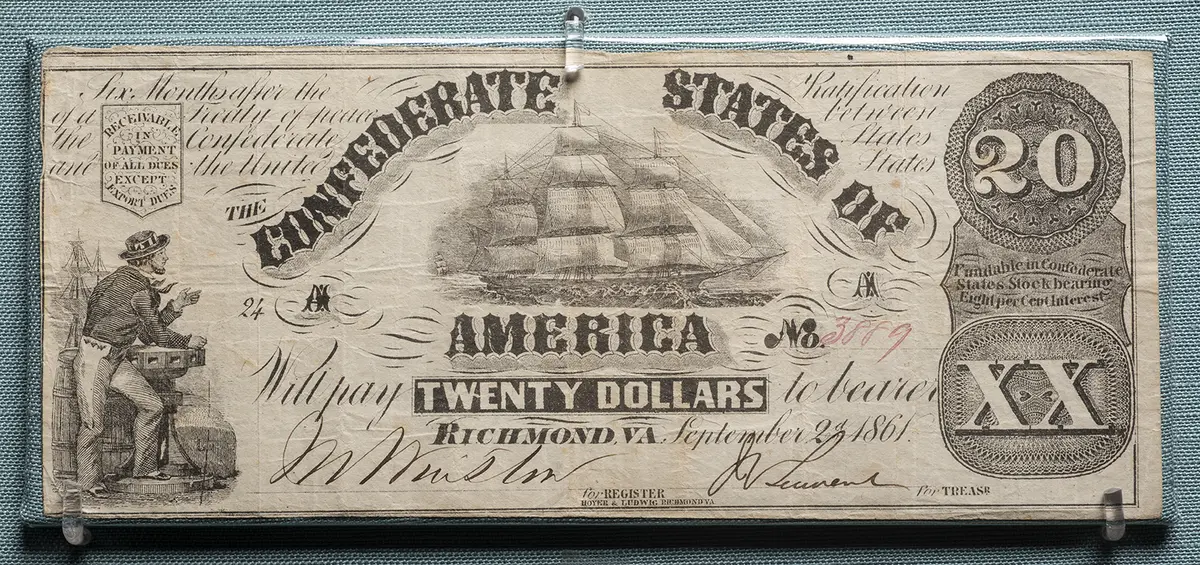 Six Months after the Ratification
of a Treaty of peace between
the Confederate States
and the United States
RECEIVABLE
IN
PAYMENT
OF ALL DUES
EXCEPT
EXPORT DUES
THE CONFEDERATE STATES OF
AMERICA
20
Fundable in Confederate
States Stock bearing
Eight per Cent Interest
24 A A
No. 3889
Will pay TWENTY DOLLARS to bearer
XX
RICHMOND, VA. September 2, 1861.
For REGISTER
For TREASR
HOYER & LUDWIG RICHMOND VA